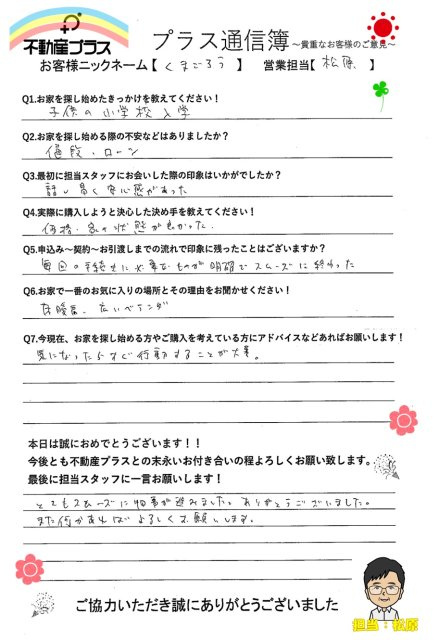 不動産プラス
プラス通信簿 ～貴重なお客様のご意見～
お客様ニックネーム【 くまごろう 】 営業担当【 松原 】
Q1.お家を探し始めたきっかけを教えてください！
子供の小学校入学
Q2.お家を探し始める際の不安などはありましたか？
値段・ローン
Q3.最初に担当スタッフにお会いした際の印象はいかがでしたか？
話し易く安心感があった
Q4.実際に購入しようと決心した決め手を教えてください！
価格・家の状態が良かった.
Q5.申込み～契約～お引渡しまでの流れで印象に残ったことはございますか？
毎回の手続きに必要なものが明確でスムーズに終わった
Q6.お家で一番のお気に入りの場所とその理由をお聞かせください！
床暖房、広いベランダ
Q7.今現在、お家を探し始める方やご購入を考えている方にアドバイスなどあればお願いします！
気になったらすぐ行動することが大事。
本日は誠におめでとうございます！！
今後とも不動産プラスとの末永いお付き合いの程よろしくお願い致します。
最後に担当スタッフに一言お願いします！
とてもスムーズに物事が進みました。ありがとうございました。
また何かあればよろしくお願いします。
ご協力いただき誠にありがとうございました
担当：松原